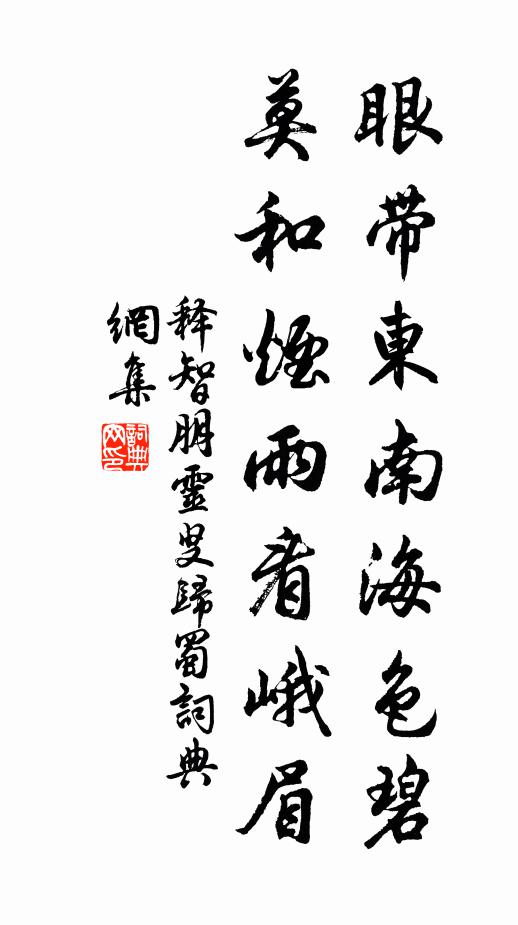 眼帶東南海色碧
莫和煙雨看峨眉
释智朋靈叟歸蜀詞典
網集
詞典
网印